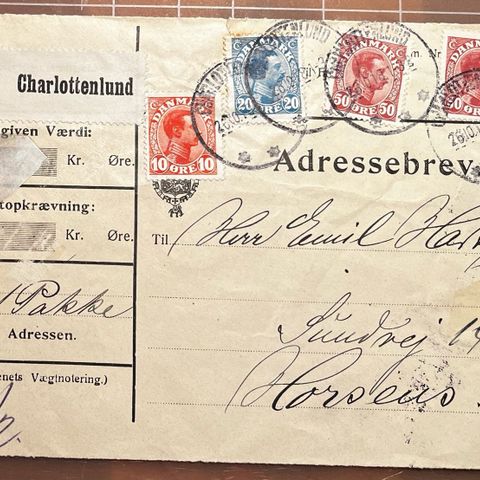 Charlottenlund
given Værdi:
Kr. Øre.
topkrævning:
Kr. Øre.
1 Pakke
Adressen.
enets Vægtnotering.)
DANMARK
10 ØRE 10
DANMARK
20 ØRE 20
DANMARK
50 ØRE 50
50
CHARLOTTENLUND
26.10.1
Adressebrev
Til
Herr Emil
Sundvej
Horsens